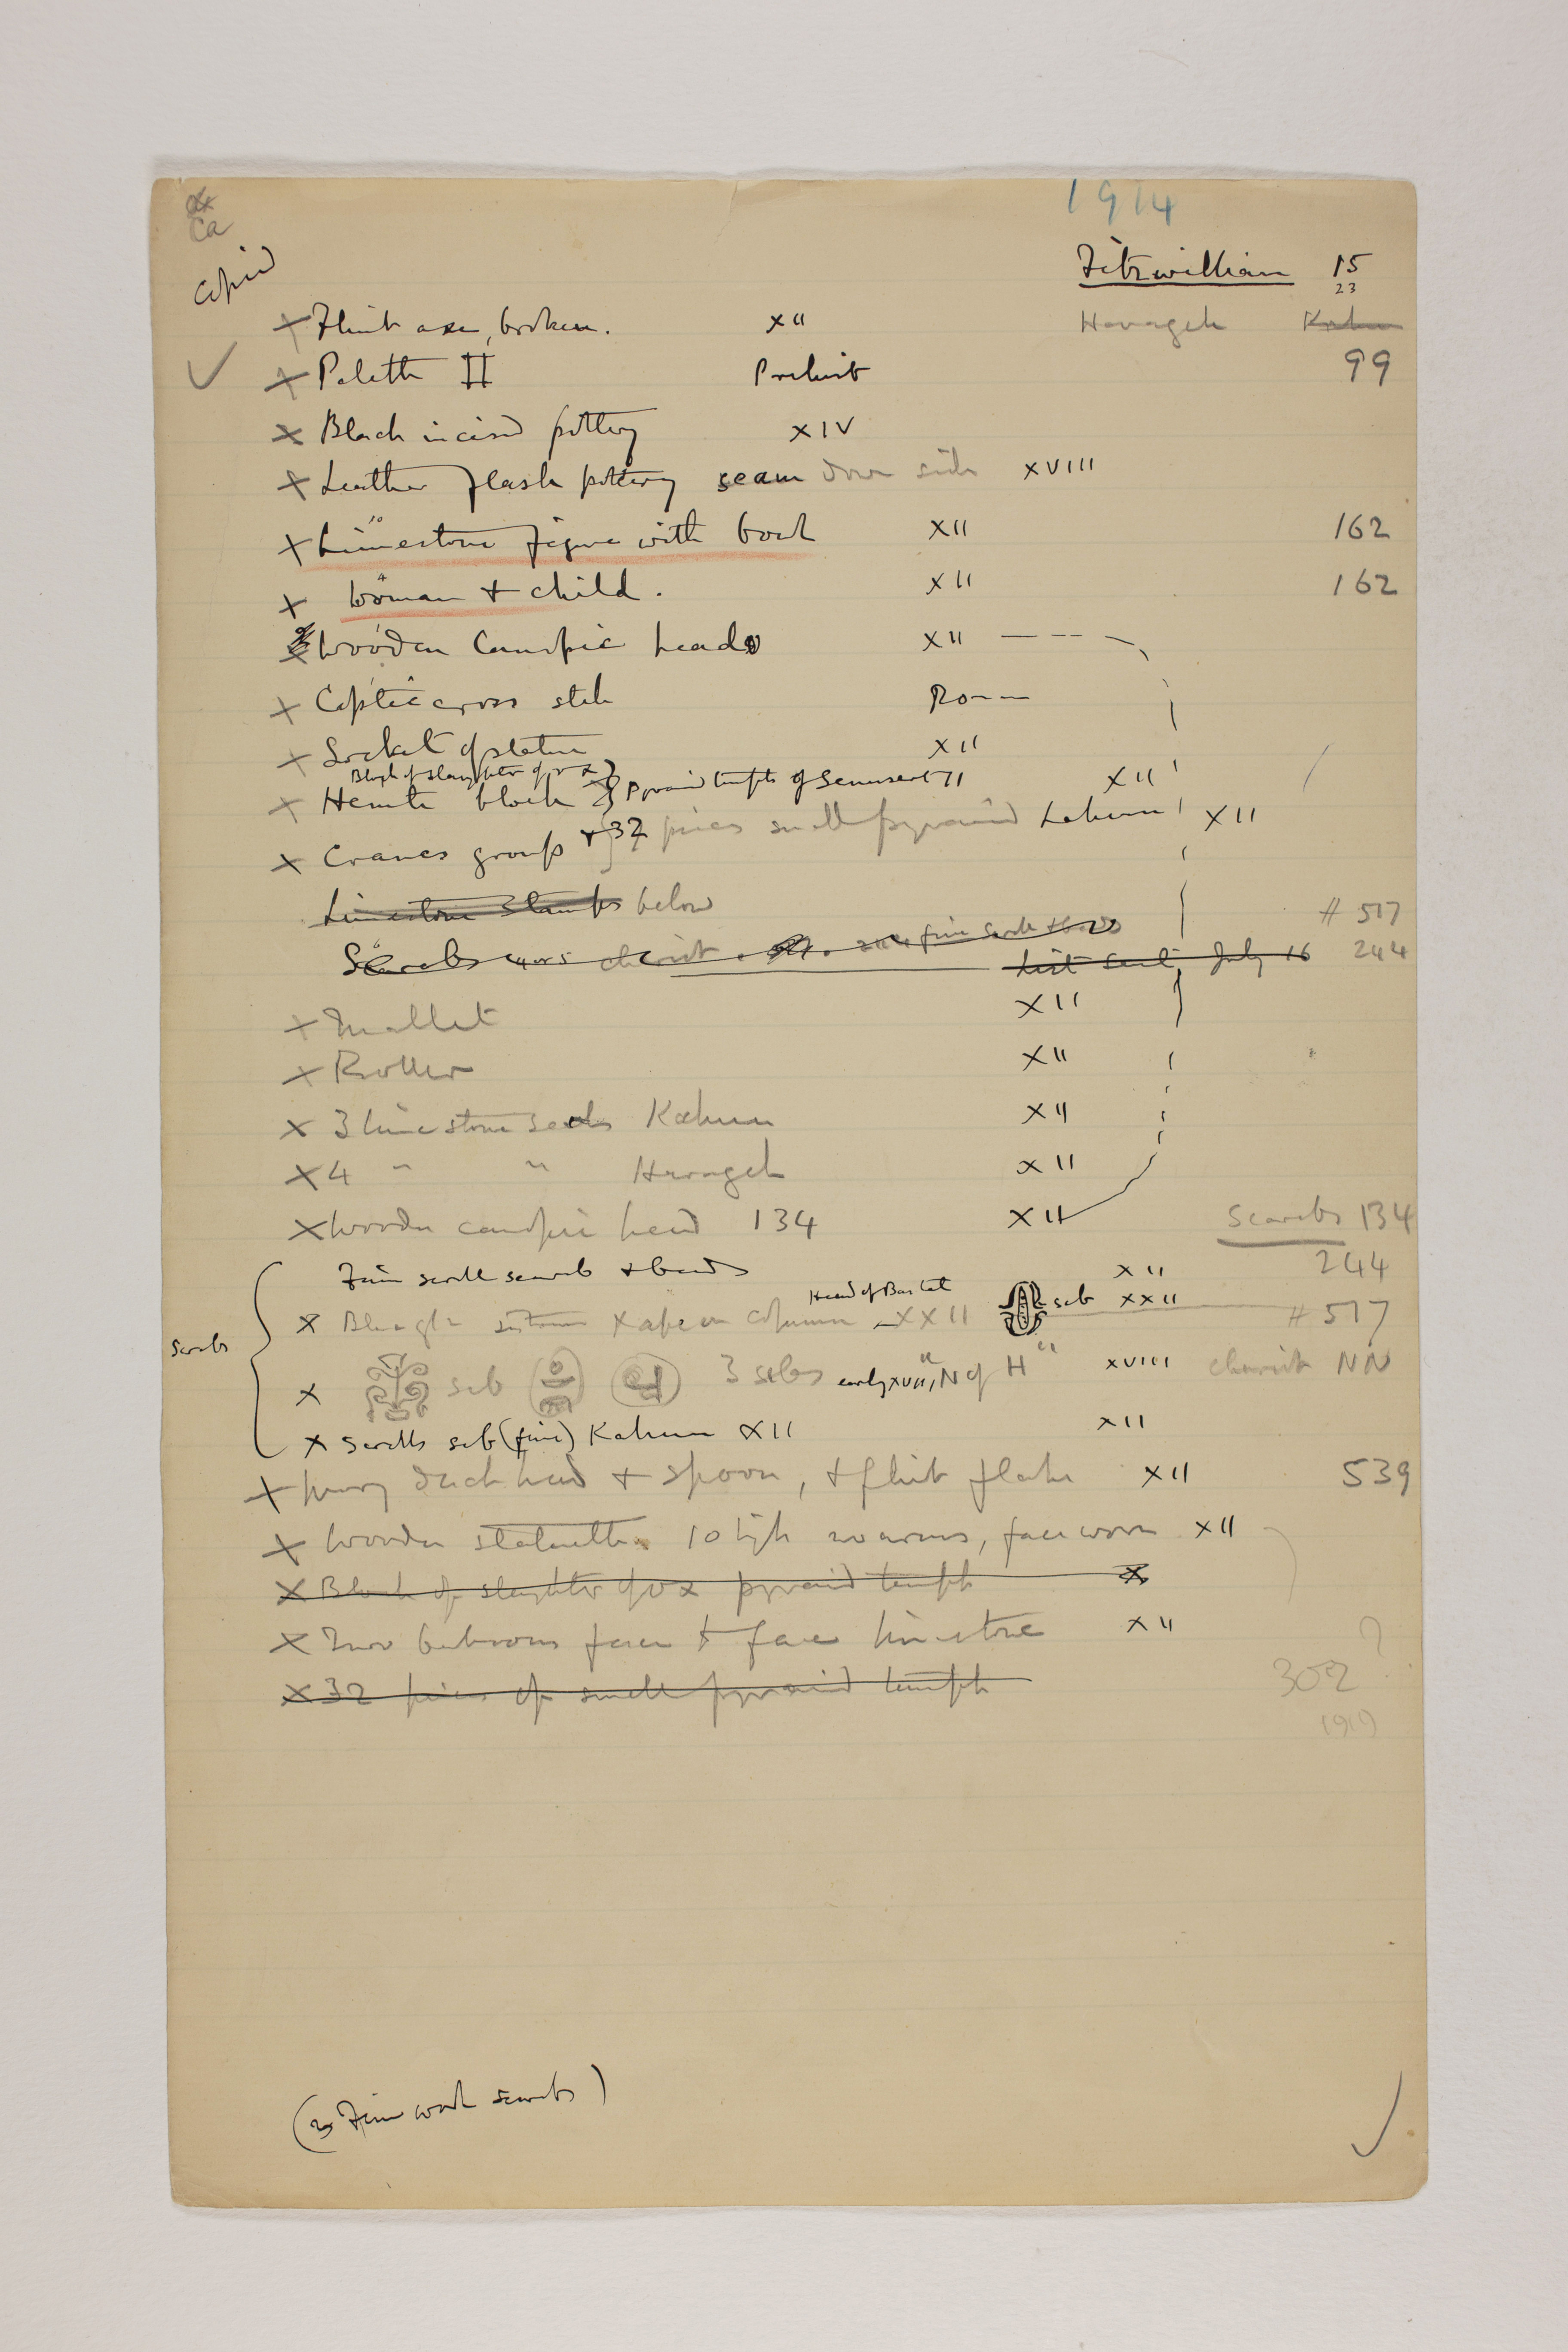 1914
Ca
Copied
Fitzwilliam 15
23
X Flint axe, broken. XII Harageh Kahun
X Palette II Prehist 99
X Black incised pottery XIV
X Leather flask pottery seam down side XVIII
X Limestone figure with bowl XII 162
X Woman + child. XII 162
Wooden Canopic heads XII
X Coptic cross stele Rom
X Socket of statue XII
Block of slaughter of ox
X block Pyramid temple of Senusert II XII
X Cranes group + 32 pieces small pyramid Lahun XII
Limestone Stamps below
# 517
Scarabs July 16 244
X Mallet XII
X Roller XII
X 3 limestone seals Kahun XII
X 4 " " Harageh XII
X Wooden canopic head 134 XII Scarabs 134
Scarabs
Fine scroll scarab + beads XII 244
Head of Bastet
X column XXII scb XXII # 517
X scb 3 scbs early XVIII, "N of H" XVIII NN
X Scrolls scb (fine) Kahun XII XII
X Ivory duck head + spoon, + flint flake XII 539
X Wooden statuette 10 high no arms, face worn XII
X Block of slaughter of ox pyramid temple X
X Two face + face limestone XII ?
X 32 pieces of small pyramid temple 302
(Fine work scarabs)